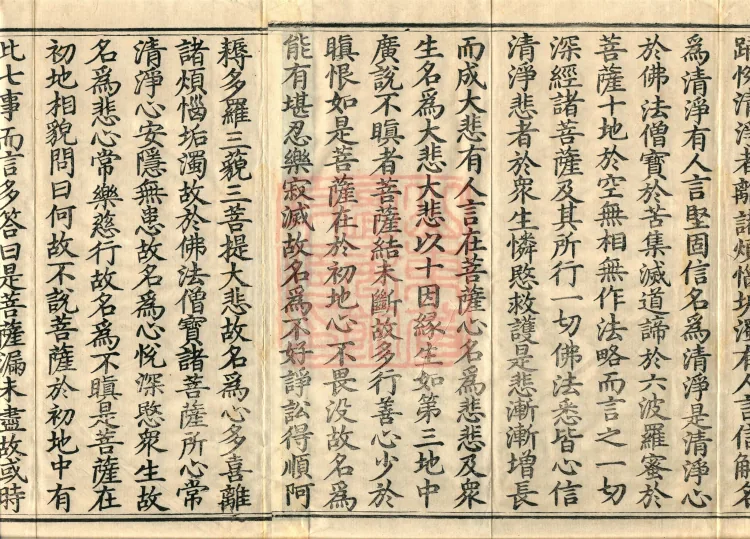 踊悅清淨者離諸煩惱垢濁有人言信解名
為清淨有人言堅固信名為清淨是清淨心
於佛法僧寶於苦集滅道諦於六波羅蜜於
菩薩十地於空無相無作法略而言之一切
深經諸菩薩及其所行一切佛法悉皆心信
清淨悲者於衆生憐愍救護是悲漸漸增長
而成大悲有人言在菩薩心名為悲悲及衆
生名為大悲大悲以十因緣生如第三地中
廣說不瞋者菩薩結未斷故多行善心少於
瞋恨如是菩薩在於初地心不畏没故名為
能有堪忍樂寂滅故名為不好諍訟得順阿
耨多羅三藐三菩提大悲故名為心多喜離
諸煩惱垢濁故於佛法僧寶諸菩薩所心常
清淨心安隱無患故名為心悅深愍衆生故
名為悲心常樂慈行故名為不瞋是菩薩在
初地相貌問曰何故不說菩薩於初地中有
此七事而言多答曰是菩薩漏未盡故或時